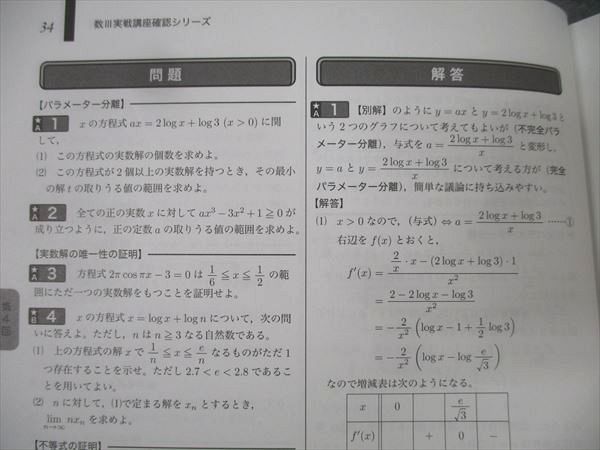 34
数Ⅲ実戦講座確認シリーズ
問題
【パラメーター分離】
★A 1 xの方程式 ax = 2 log x + log 3 (x > 0) に関
して,
(1) この方程式の実数解の個数を求めよ。
(2) この方程式が2個以上の実数解を持つとき,その最小
の解 t の取りうる値の範囲を求めよ。
★A 2 全ての正の実数 x に対して ax³ − 3x² + 1 ≧ 0 が
成り立つように,正の定数 a の取りうる値の範囲を求めよ。
【実数解の唯一性の証明】
★A 3 方程式 2π cos πx − 3 = 0 は 1/6 ≦ x ≦ 1/2 の範
囲にただ一つの実数解をもつことを証明せよ。
★B 4 xの方程式 x = log x + log n について,次の問
いに答えよ。ただし,n は n ≧ 3 なる自然数である。
(1) 上の方程式の解 x で 1/n ≦ x ≦ e/n なるものがただ1
つ存在することを示せ。ただし 2.7 < e < 2.8 であるこ
とを用いてよい。
(2) n に対して,(1)で定まる解を xₙ とするとき,
lim n→∞ nxₙ を求めよ。
【不等式の証明】
第4回
解答
★A 1 【別解】のように y = ax と y = 2 log x + log 3 と
いう2つのグラフについて考えてもよいが(不完全パラ
メーター分離),与式を a = (2 log x + log 3)/x と変形し,
y = a と y = (2 log x + log 3)/x について考える方が(完全
パラメーター分離),簡単な議論に持ち込みやすい。
【解答】
(1) x > 0 なので,(与式) ⇔ a = (2 log x + log 3)/x ……①
右辺を f(x) とおくと,
f′(x) = (2/x · x − (2 log x + log 3) · 1)/x²
= (2 − 2 log x − log 3)/x²
= −2/x² (log x − 1 + 1/2 log 3)
= −2/x² (log x − log e/√3)
なので増減表は次のようになる。
x 0 e/√3
f′(x) + 0 −